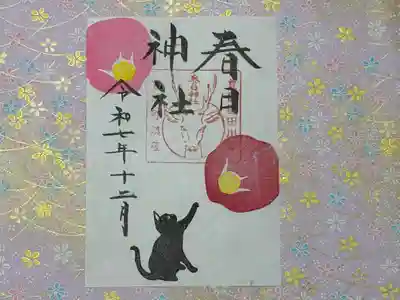 春日
神社
令和七年十二月